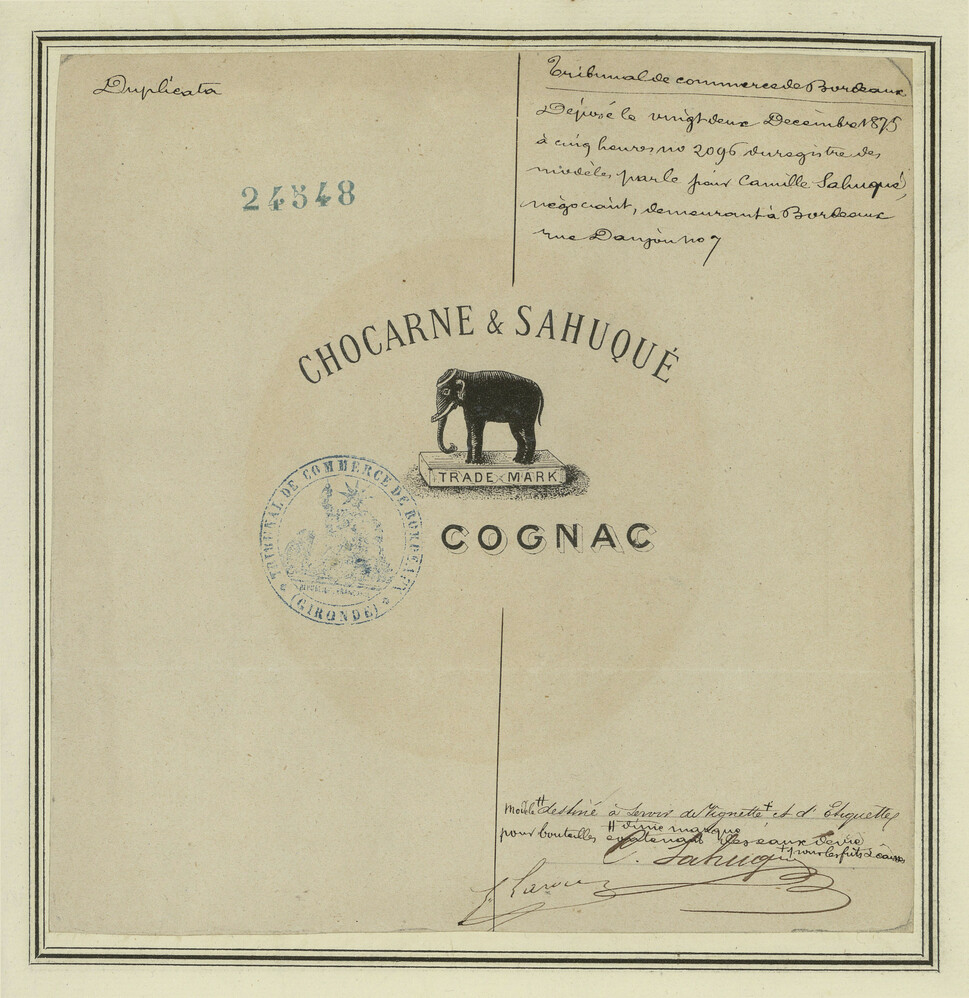 Duplicata
Tribunal de commerce de Bordeaux
Déposé le vingt deux Décembre 1875
à cinq heures no 2096 du registre des
modèles par le sieur Camille Sahuqué,
négociant, demeurant à Bordeaux
rue Danjou no 7
24548
CHOCARNE & SAHUQUÉ
TRADE MARK
COGNAC
TRIBUNAL DE COMMERCE DE BORDEAUX
(GIRONDE)
modèle # destiné à servir de Vignette + et d'Etiquettes
# d'une marque
pour bouteilles contenant des eaux de vie
+ pour les fûts & caisses
C. Sahuqué